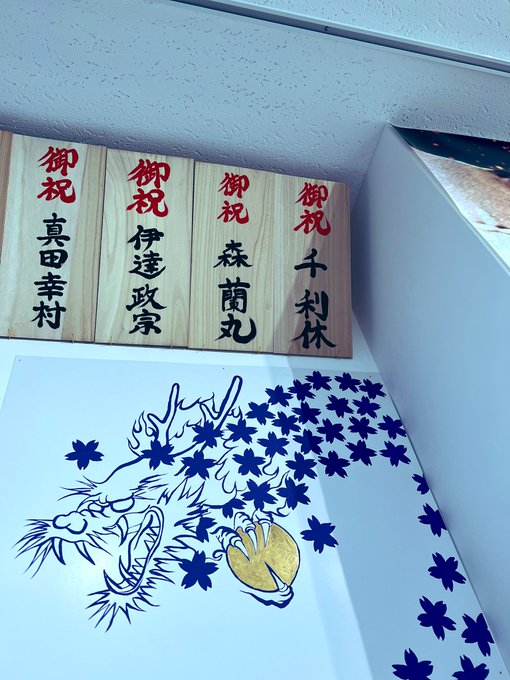 御祝 千利休
御祝 森蘭丸
御祝 伊達政宗
御祝 真田幸村